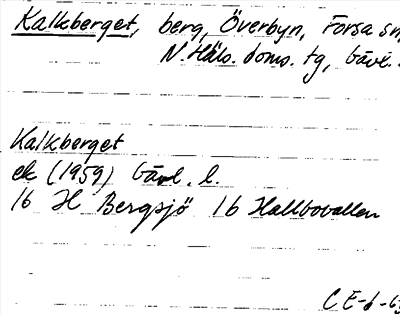 Kalkberget, berg, Överbyn, Forsa sn,
N. Häls. doms. tg, Gävl.
Kalkberget
ek (1959) Gävl. l.
16 H Bergsjö 1b Hallbovallen
CE-6-63